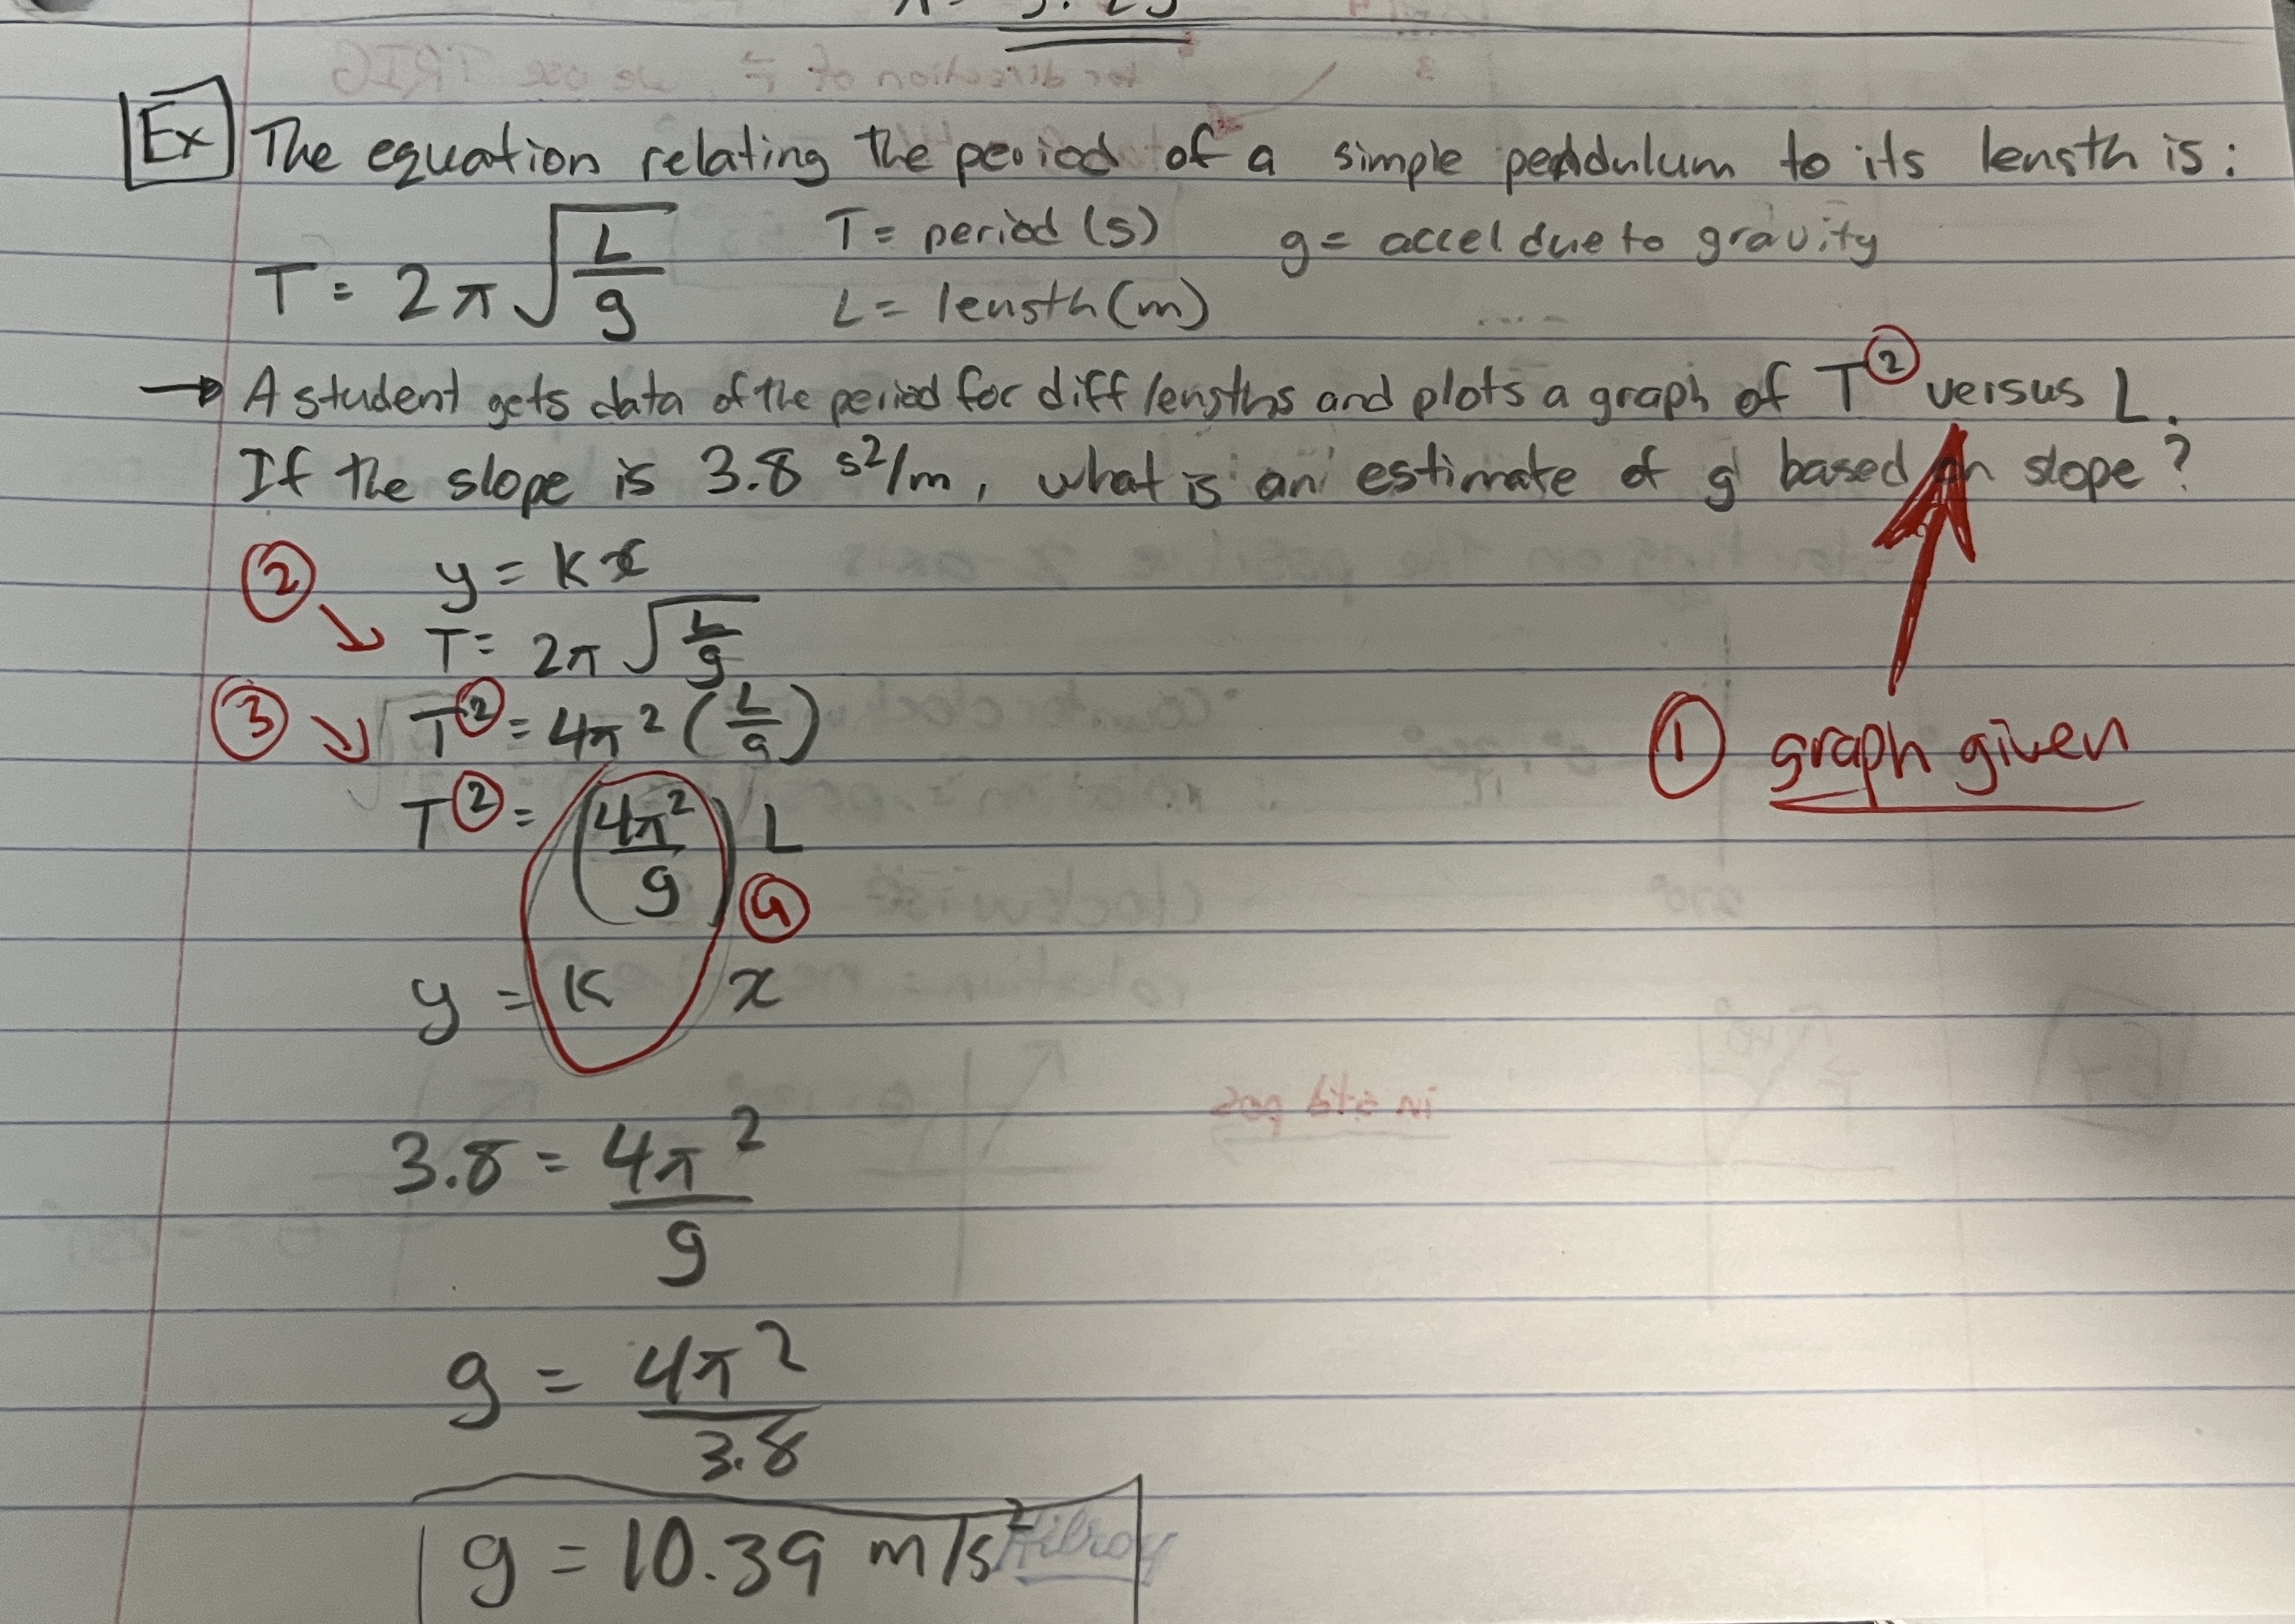 Ex The equation relating the period of a simple pendulum to its length is:
T = 2π √(L/g) T = period (s) g = accel due to gravity
L = length (m)
→ A student gets data of the period for diff lengths and plots a graph of T² versus L.
If the slope is 3.8 s²/m, what is an estimate of g based on slope?
② y = kx
T = 2π √(L/g)
③ T² = 4π² (L/g)
① graph given
T² = (4π²/g) L
④
y = k x
in std pos
3.8 = 4π²/g
g = 4π²/3.8
g = 10.39 m/s²
Hilroy